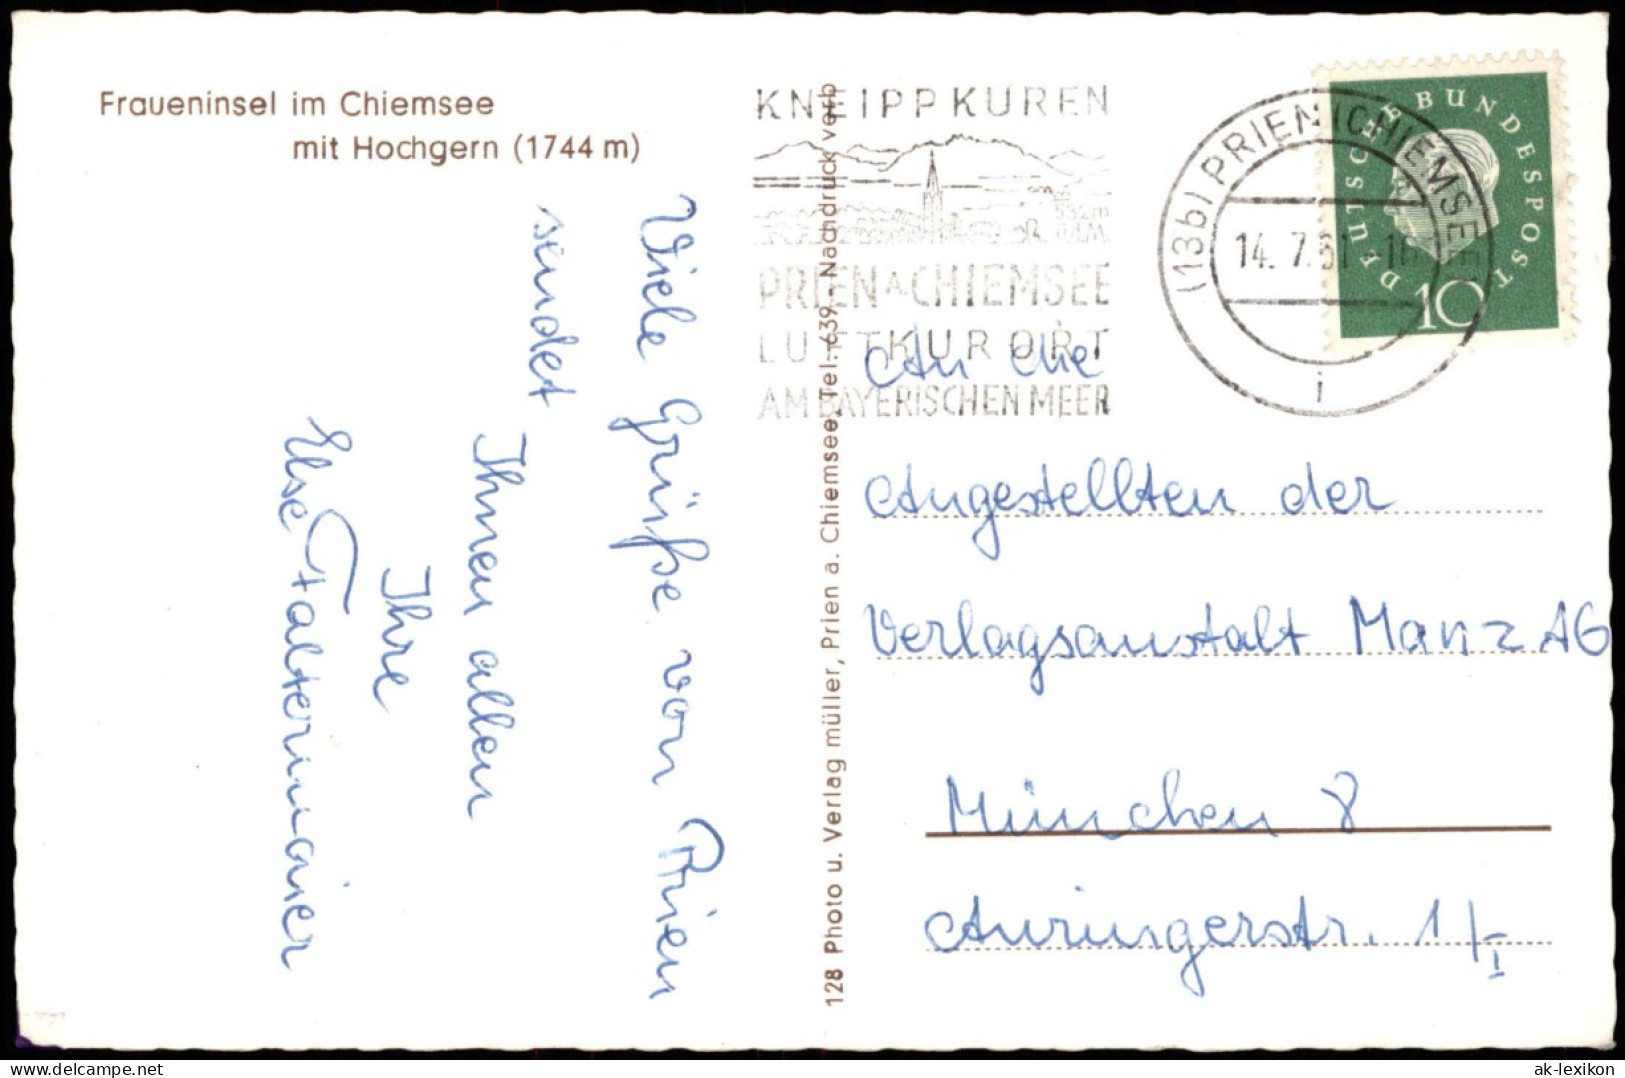 Fraueninsel im Chiemsee
mit Hochgern (1744 m)
Viele Grüße von Prien
sendet
Ihnen allen
Ihre
Else Faltermaier
128 Photo u. Verlag müller, Prien a. Chiemsee, Tel. 639 - Nachdruck verb
KNEIPPKUREN
532m
ü.d.M.
PRIEN A CHIEMSEE
LUFTKURORT
AM BAYERISCHEN MEER
(13b) PRIEN (CHIEMSEE)
14. 7. 61
i
DEUTSCHE BUNDESPOST
10
An die
Angestellten der
Verlagsanstalt Manz AG
München 8
Anzingerstr. 1/I
delcampe.net
ak-lexikon